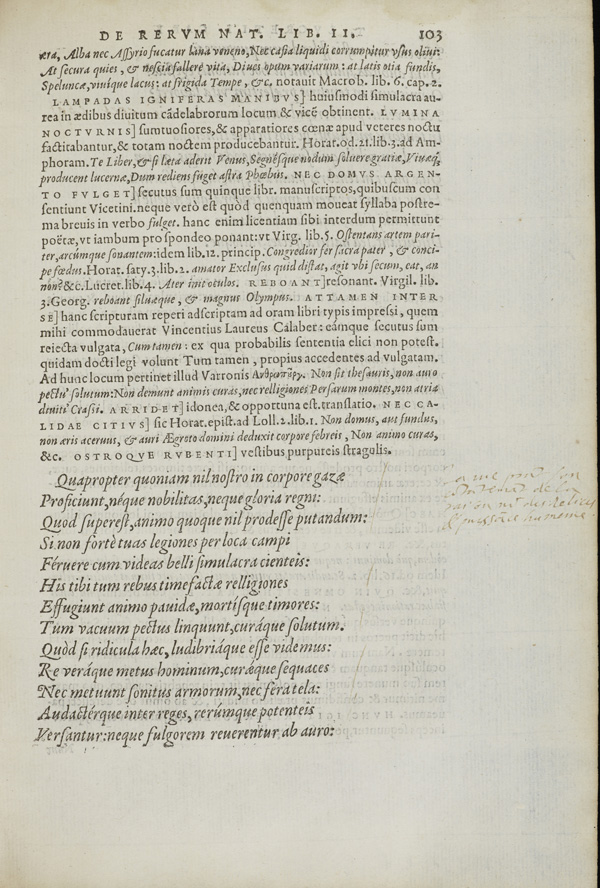 DE RERVM NAT. LIB. II. 103
æra, Alba nec Assyrio fucatur lana veneno, Nec casia liquidi corrumpitur vsus oliui:
At secura quies, & nescia fallere vita, Diues opum variarum: at latis otia fundis,
Speluncæ, viuíque lacus: at frigida Tempe, &c. notauit Macrob. lib. 6. cap. 2.
LAMPADAS IGNIFERAS MANIBVS] huiusmodi simulacra au-
rea in ædibus diuitum cãdelabrorum locum & vicẽ obtinent. LVMINA
NOCTVRNIS] sumtuosiores, & apparatiores cœnæ apud veteres noctu
factitabantur, & totam noctem producebantur. Horat. od. 21. lib. 3. ad Am-
phoram. Te Liber, & si læta aderit Venus, Segnésque nodum soluere gratiæ, Viuæq́;
producent lucernæ, Dum rediens fuget astra Phœbus. NEC DOMVS ARGEN-
TO FVLGET] secutus sum quinque libr. manuscriptos, quibuscum con
sentiunt Vicetini. neque verò est quòd quenquam moueat syllaba postre-
ma breuis in verbo fulget. hanc enim licentiam sibi interdum permittunt
poëtæ, vt iambum pro spondeo ponant: vt Virg. lib. 5. Ostentans artem pari-
ter, arcúmque sonantem: idem lib. 12. princip. Congredior fer sacra pater, & conci-
pe fœdus. Horat. saty. 3. lib. 2. amator Exclusus quid distat, agit vbi secum, eat, an
non? &c. Lucret. lib. 4. Ater init oculos. REBOANT] resonant. Virgil. lib.
3. Georg. reboant siluæque, & magnus Olympus. ATTAMEN INTER
SE] hanc scripturam reperi adscriptam ad oram libri typis impressi, quem
mihi commodauerat Vincentius Laureus Calaber: eámque secutus sum
reiecta vulgata, Cum tamen: ex qua probabilis sententia elici non potest.
quidam docti legi volunt Tum tamen, propius accedentes ad vulgatam.
Ad hunc locum pertinet illud Varronis Non fit thesauris, non auro
pectu' solutum: Non demunt animis curas, nec relligiones Persarum montes, non atria
diuiti' Crassi. ARRIDET] idonea, & opportuna est translatio. NEC CA-
LIDAE CITIVS] sic Horat. epist. ad Loll. 2. lib. 1. Non domus, aut fundus,
non æris aceruus, & auri Ægroto domini deduxit corpore febreis, Non animo curas,
&c. OSTROQVE RVBENTI] vestibus purpureis stragulis.
Quapropter quoniam nil nostro in corpore gazæ
Proficiunt, néque nobilitas, neque gloria regni:
Quod superest, animo quoque nil prodesse putandum:
Si non fortè tuas legiones per loca campi
Féruere cum videas belli simulacra cienteis:
His tibi tum rebus timefactæ relligiones
Effugiunt animo pauidæ, mortísque timores:
Tum vacuum pectus linquunt, curáque solutum.
Quòd si ridicula hæc, ludibriáque esse videmus:
Re veráque metus hominum, curæque sequaces
Nec metuunt sonitus armorum, nec fera tela:
Audactérque inter reges, rerúmque potenteis
Versantur: neque fulgorem reuerentur ab auro: